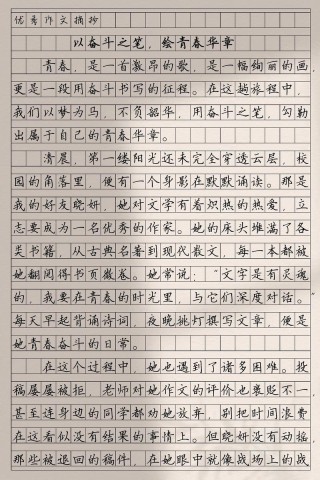 优秀作文摘抄
以奋斗之笔,绘青春华章
青春,是一首激昂的歌,是一幅绚丽的画,
更是一段用奋斗书写的征程。在这趟旅程中,
我们以梦为马,不负韶华,用奋斗之笔,勾勒
出属于自己的青春华章。
清晨,第一缕阳光还未完全穿透云层,校
园的角落里,便有一个身影在默默诵读。那是
我的好友晓妍,她对文学有着炽热的热爱,立
志要成为一名优秀的作家。她的床头堆满了各
类书籍,从古典名著到现代散文,每一本都被
她翻阅得书页微卷。她常说:“文字是有灵魂
的,我要在青春的时光里,与它们深度对话。”
每天早起背诵诗词,夜晚挑灯撰写文章,便是
她青春奋斗的日常。
在这个过程中,她也遇到了诸多困难。投
稿屡屡被拒,老师对她作文的评价也褒贬不一,
甚至连身边的同学都劝她放弃,别把时间浪费
在这看似没有结果的事情上。但晓妍没有动摇,
那些被退回的稿件,在她眼中就像战场上的战